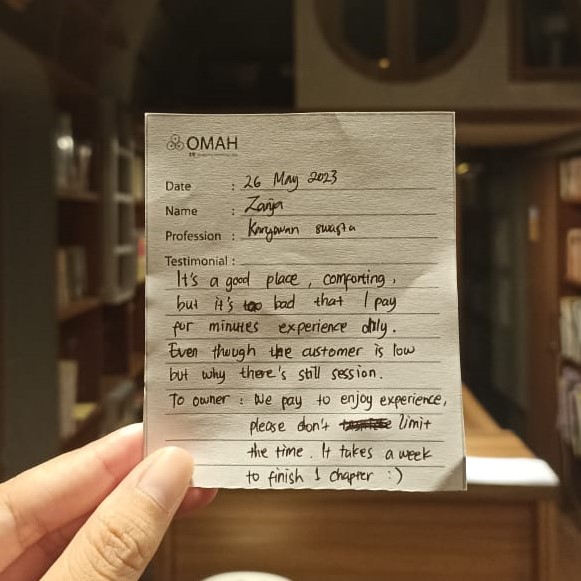 OMAH
Date : 26 May 2023
Name : Zanja
Profession : Karyawan swasta
Testimonial :
It's a good place, comforting,
but it's too bad that I pay
for minutes experience only.
Even though the customer is low
but why there's still session.
To owner : We pay to enjoy experience,
please don't limit
the time. It takes a week
to finish 1 chapter :)